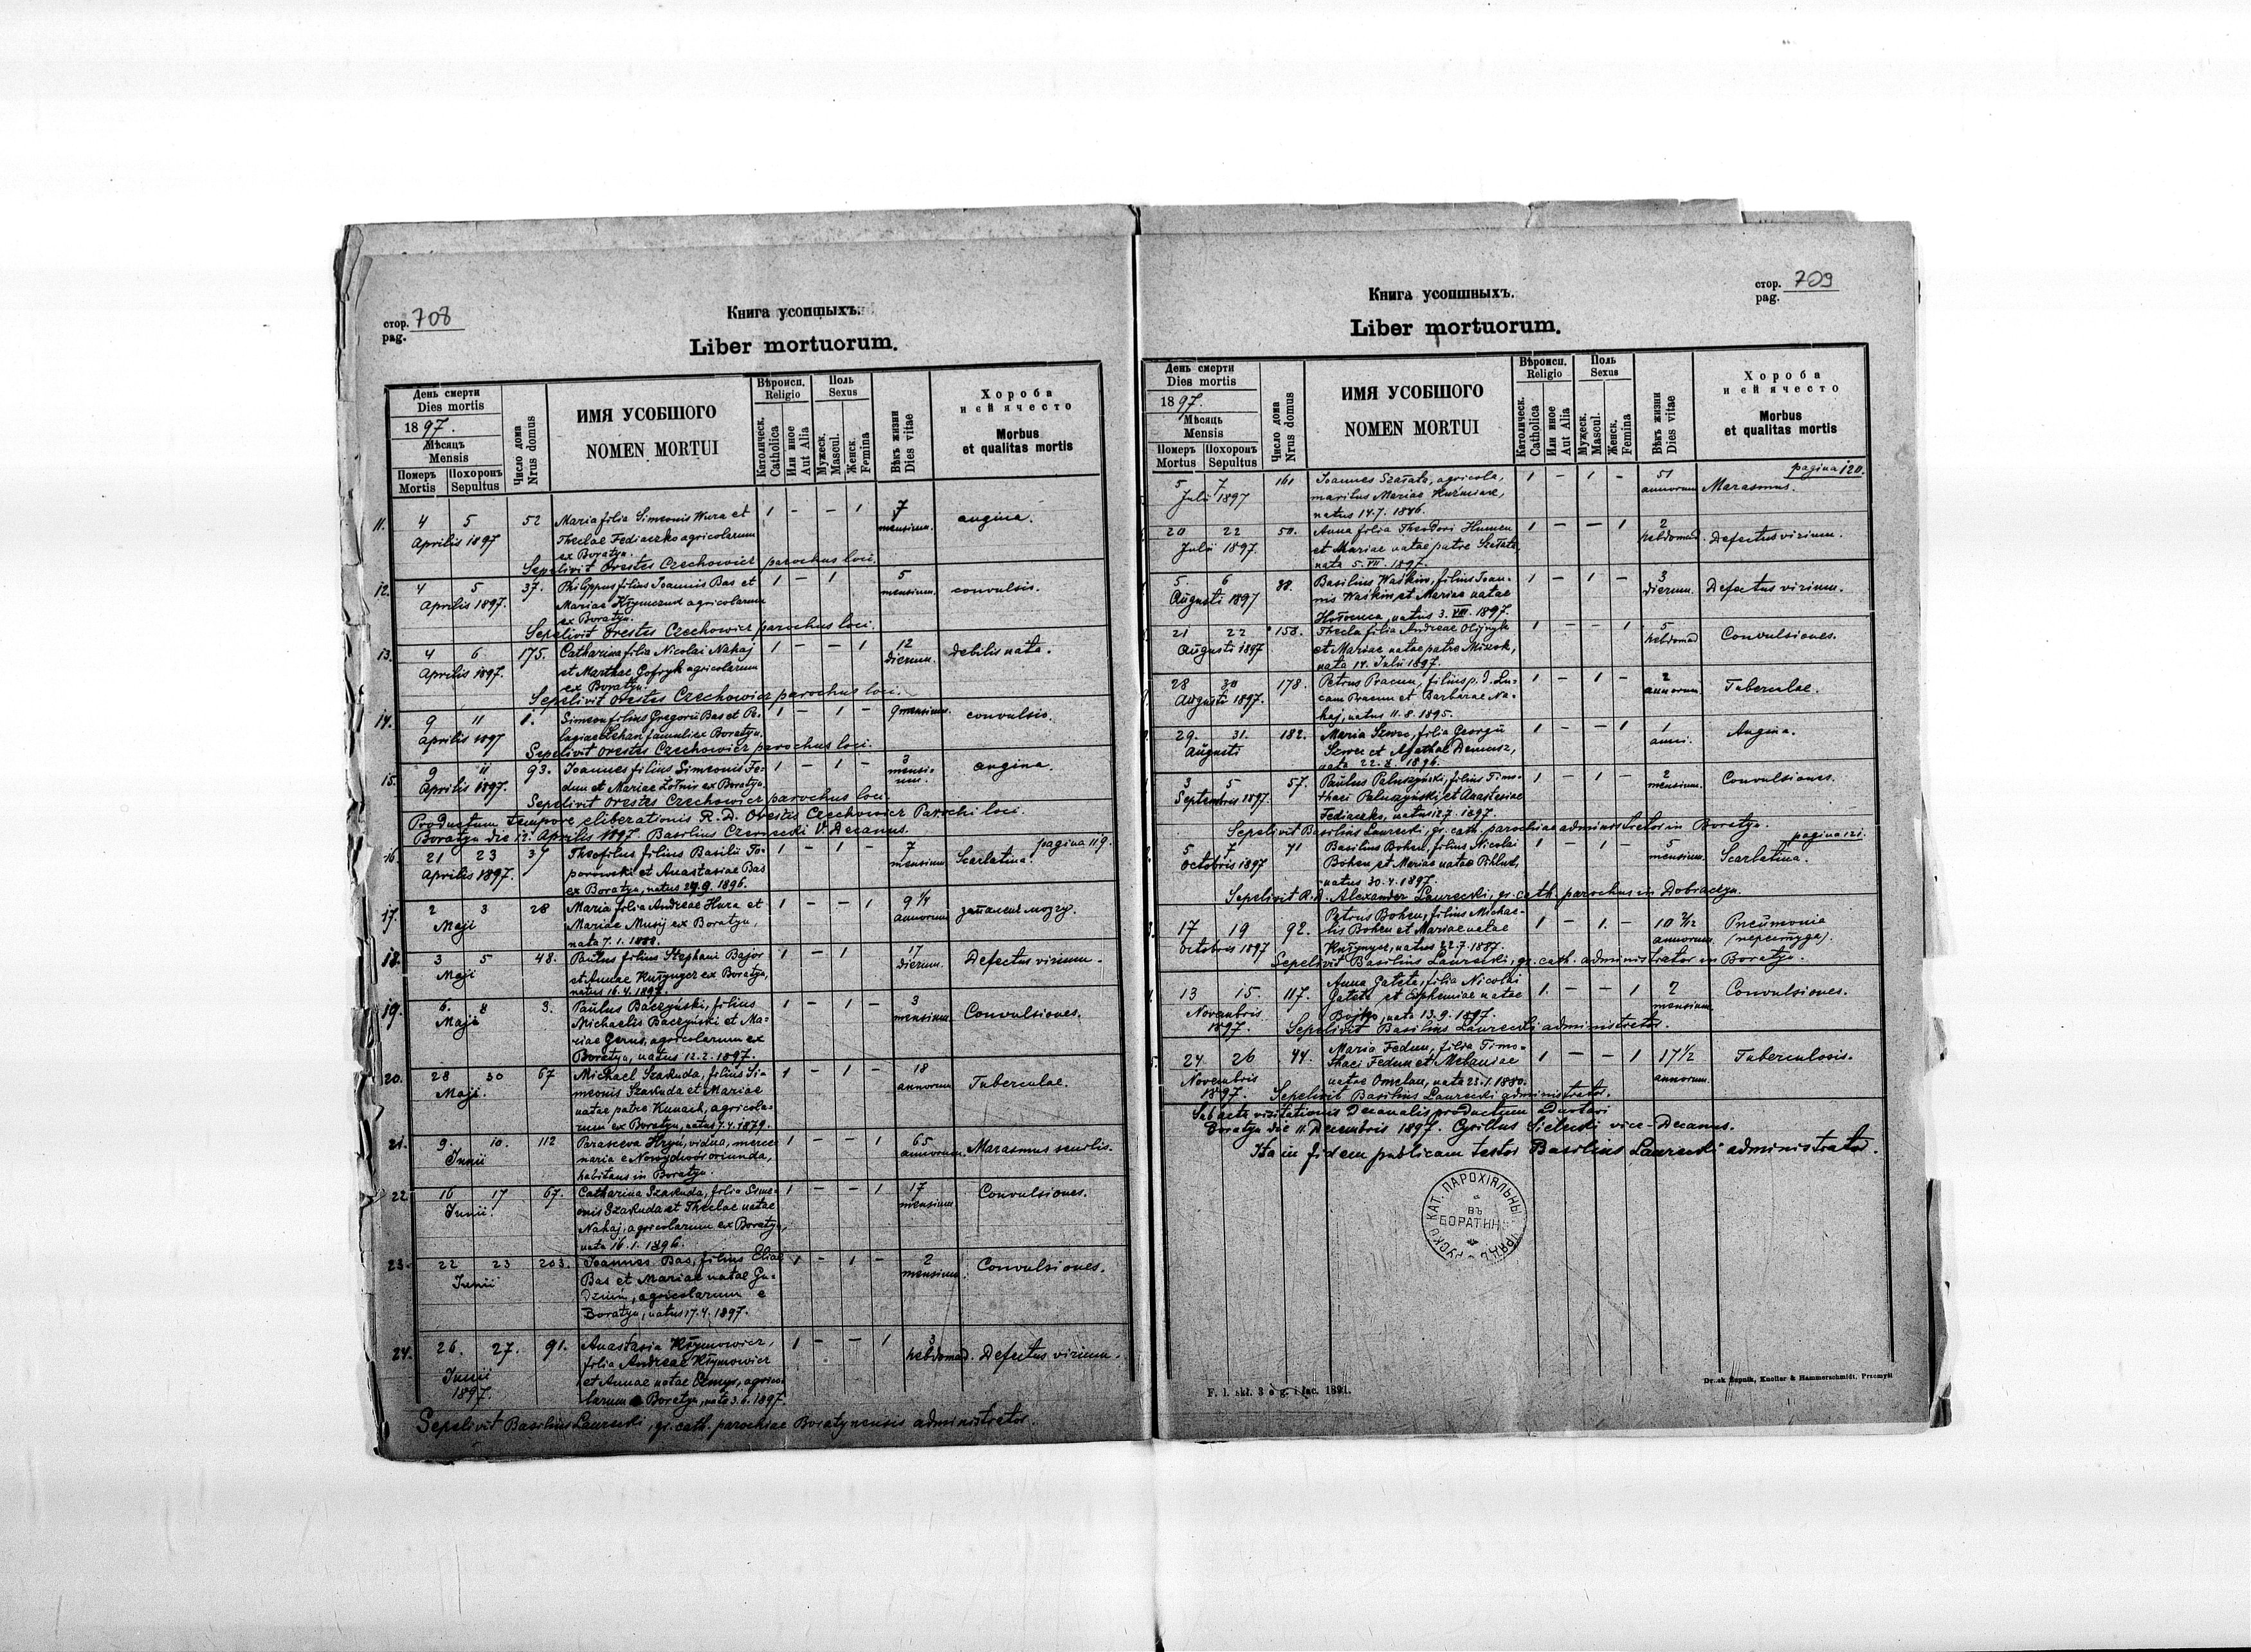 стор. 708
pag.
Книга усопшыхъ.
Liber mortuorum.
День смерти
Dies mortis
1897.
Мѣсяць
Mensis
Померъ Похоронъ
Mortis Sepultus
Число дома
Nrus domus
ИМЯ УСОБШОГО
NOMEN MORTUI
Вѣроисп.
Religio
Католическ.
Catholica
Или иное
Aut Alia
Поль
Sexus
Мужеск.
Mascul.
Женск.
Femina
Вѣкъ жизни
Dies vitae
Хороба
и єй ячесто
Morbus
et qualitas mortis
11. 4 5 52 Maria filia Simeonis Wura et 1 - - 1 7 angina.
Aprilis 1897 Theclae Fediaczko agricolarum mensium.
ex Boratyn.
Sepelivit Orestes Czechowicz parochus loci.
12. 4 5 37. Philippus filius Joannis Bas et 1 - 1 5 convulsio.
Aprilis 1897. Mariae agricolarum mensium.
ex Boratyn.
Sepelivit Orestes Czechowicz parochus loci.
13. 4 6 175. Catharina filia Nicolai Nahaj 1 - - 1 12 debilis nata.
Aprilis 1897. et Marthae Gofryk agricolarum dierum.
ex Boratyn.
Sepelivit Orestes Czechowicz parochus loci.
14. 9 11 1. Simeon filius Gregorii Bas et Pe- 1 - 1 - 9 mensium. convulsio.
Aprilis 1897 lagiae famuli ex Boratyn.
Sepelivit Orestes Czechowicz parochus loci.
15. 9 11 93. Joannes filius Simeonis Fe- 1 - 1 - 3 angina.
Aprilis 1897. dun et Mariae ex Boratyn mensi-
um.
Sepelivit Orestes Czechowicz parochus loci.
Productum tempore eliberationis R. D. Orestis Czechowicz Parochi loci.
Boratyn die 12. Aprilis 1897. Basilius Czernecki V. Decanus.
pagina 119.
16. 21 23 37 Theofilus filius Basilii To- 1 - 1 - 7 Scarlatina.
Aprilis 1897. porowski et Anastasiae Bas mensium
ex Boratyn, natus 1896.
17. 2 3 28 Maria filia Andreae Hura et 1 - - 1 9 1/4
Maji Mariae Musij ex Boratyn, annorum мозгу.
nata 7. 1. 1888.
18. 3 5 48. Paulus filius Stephani Bajor 1 - 1 17 Defectus virium.
Maji et Annae ex Boratyn, dierum.
natus 16. 4. 1897.
19. 6. 8 3. Paulus Baczyński, filius 1 - 1 - 3 Convulsiones.
Maji Michaelis Baczyński et Ma- mensium.
riae Gerus, agricolarum ex
Boratyn, natus 12. 2. 1897.
20. 28 30 67 Michael Szakuda, filius Si- 1 - 1 - 18 Tuberculae.
Maji. meonis Szakuda et Mariae annorum
natae patre Kunach, agricola-
rum ex Boratyn, natus 7. 4. 1879.
21. 9. 10. 112 Parasceva Hryń, vidua, merce- 1 - - 1 65 Marasmus senilis.
Junii naria e oriunda, annorum.
habitans in Boratyn.
22. 16 17 67. Catharina Szakuda, filia Sime- 1 - - 1 17 Convulsiones.
Junii. onis Szakuda et Theclae natae mensium
Nahaj, agricolarum ex Boratyn,
nata 16. 1. 1896.
23. 22 23 203. Joannes Bas, filius Eliae 1 - 1 - 2 Convulsiones.
Junii Bas et Mariae natae mensium.
agricolarum e
Boratyn, natus 17. 4. 1897.
24. 26. 27. 91. Anastasia Kłymowicz, 1 - - 1 3 Defectus virium.
Junii filia Andreae Kłymowicz hebdomad.
1897. et Annae natae agrico-
larum e Boratyn, nata 3. 6. 1897.
Sepelivit Basilius Laurecki, gr. cath. parochiae Boratynensis administrator.
стор. 709
pag.
Книга усопшныхъ.
Liber mortuorum.
День смерти
Dies mortis
1897.
Мѣсяць
Mensis
Померъ Похоронъ
Mortus Sepultus
Число дома
Nrus domus
ИМЯ УСОБШОГО
NOMEN MORTUI
Вѣроисп.
Religio
Католическ.
Catholica
Или иное
Aut Alia
Поль
Sexus
Мужеск.
Mascul.
Женск.
Femina
Вѣкъ жизни
Dies vitae
Хороба
и єй ячесто
Morbus
et qualitas mortis
pagina 120.
5 7 161 Joannes Szałata, agricola, 1 - 1 - 51 Marasmus.
Julii 1897 maritus Mariae Kuźmiare, annorum
natus 14. 7. 1846.
20 22 50. Anna filia Theodori Humen 1 - - 1 2 Defectus virium.
Julii 1897. et Mariae natae patre Szałata, hebdomad.
nata 5. VII. 1897.
5. 6 38. Basilius Waśkin, filius Joan- 1 - 1 - 3 Defectus virium.
Augusti 1897 nis Waśkin et Mariae natae dierum.
natus 3. VIII. 1897.
21 22 158. Thecla filia Andreae Olijnyk 1 - - 1 5 Convulsiones.
Augusti 1897 et Mariae natae patre hebdomad
nata 14. Julii 1897.
28 30 178. Petrus Pracun, filius p. d. Lu- 1 - 1 - 2 Tuberculae.
Augusti 1897. cam Pracun et Barbarae Na- annorum
haj, natus 11. 8. 1895.
29. 31. 182. Maria Szwec, filia Georgii 1 - - 1 1 Angina.
Augusti Szwec et Agathae anni.
nata 22. 1896.
3 5 57. Paulus Paluszyński, filius Timo- 1 - 1 - 2 Convulsiones.
Septembris 1897. thaei Paluszyński et Anastasiae mensium.
Fediaczko, natus 12. 7. 1897.
Sepelivit Basilius Laurecki, gr. cath. parochiae administrator in Boratyn.
pagina 121.
5 7 71 Basilius Bohen, filius Nicolai 1 - 1 - 5 Scarlatina.
Octobris 1897 Bohen et Mariae natae mensium.
natus 30. 4. 1897.
Sepelivit R. D. Alexander Laurecki, gr. cath. parochus in Dobraczyn.
17 19 92. Petrus Bohen, filius Michae- 1 - 1. - 10 3/12 Pneumonia
Octobris 1897 lis Bohen et Mariae natae annorum (перестуда).
natus 22. 7. 1887.
Sepelivit Basilius Laurecki, gr. cath. administrator in Boratyn.
13 15. 117. Anna Gateta, filia Nicolai 1. - - 1 2 Convulsiones.
Novembris Gateta et Euphemiae natae mensium
1897. Bojko, nata 13. 9. 1897.
Sepelivit Basilius Laurecki administrator.
24 26 44. Maria Fedun, filia Timo- 1 - - 1 17 1/2 Tuberculosis.
Novembris thaei Fedun et Melaniae annorum.
1897. natae Omelan, nata 23. 1. 1880.
Sepelivit Basilius Laurecki administrator.
Sub actu visitationis Decanalis productum
Boratyn die 11. Decembris 1897. Cyrillus Sielecki vice-Decanus.
Ita in fidem publicam testor Basilius Laurecki administrator.
КАТ. ПАРОХІЯЛЬНЫ
ВЪ
БОРАТИНѢ
F. l. skł. 3 o g. i łac. 1891.
Druk Żupnik, Knoller & Hammerschmidt, Przemyśl